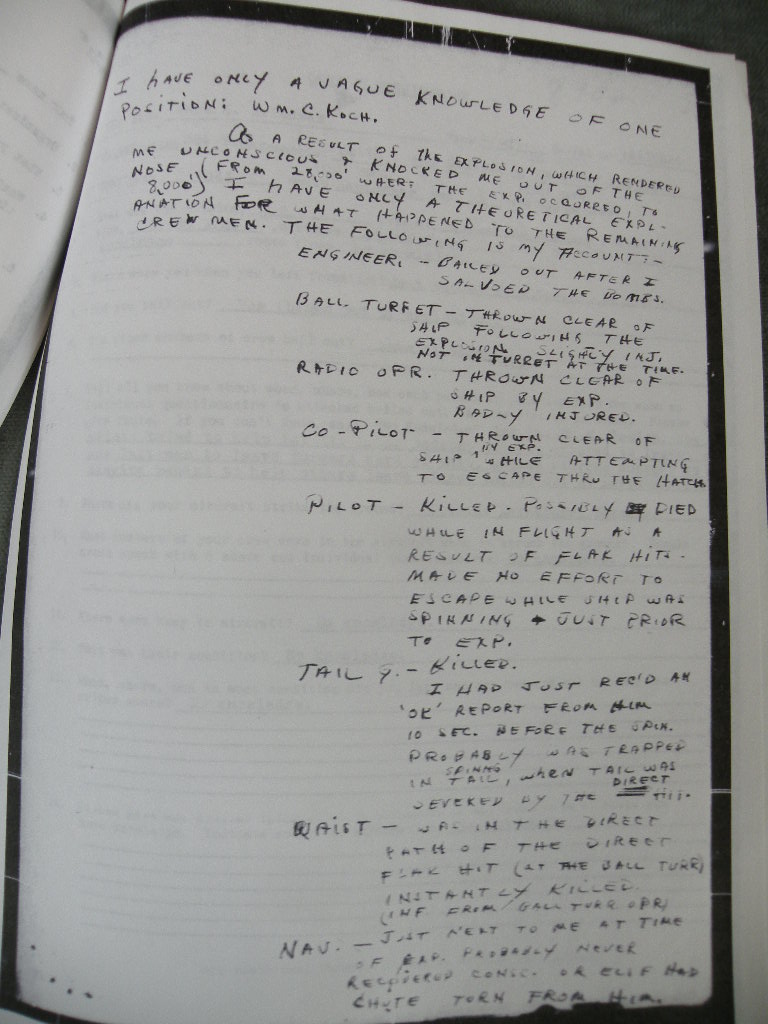 I HAVE ONLY A VAGUE KNOWLEDGE OF ONE
POSITION: WM. C. KOCH.
AS A RESULT OF THE EXPLOSION, WHICH RENDERED
ME UNCONSCIOUS & KNOCKED ME OUT OF THE
NOSE, (FROM 28,000' WHERE THE EXP. OCCURRED, TO
8,000) I HAVE ONLY A THEORETICAL EXPL-
ANATION FOR WHAT HAPPENED TO THE REMAINING
CREWMEN. THE FOLLOWING IS MY ACCOUNT:-
ENGINEER, - BAILED OUT AFTER I
SALVOED THE BOMBS.
BALL TURRET - THROWN CLEAR OF
SHIP FOLLOWING THE
EXPLOSION SLIGHTLY INJ.
NOT IN TURRET AT THE TIME.
RADIO OPR. THROWN CLEAR OF
SHIP BY EXP.
BADLY INJURED.
CO-PILOT - THROWN CLEAR OF
SHIP BY EXP. WHILE ATTEMPTING
TO ESCAPE THRU THE HATCH.
PILOT - KILLED. POSSIBLY DIED
WHILE IN FLIGHT AS A
RESULT OF FLAK HITS.
MADE NO EFFORT TO
ESCAPE WHILE SHIP WAS
SPINNING & JUST PRIOR
TO EXP.
TAIL G. - KILLED.
I HAD JUST REC'D AN
'OK' REPORT FROM HIM
10 SEC. BEFORE THE SPIN.
PROBABLY WAS TRAPPED
IN SPINNG TAIL, WHEN TAIL WAS
SEVERED BY THE DIRECT HIT.
WAIST - WAS IN THE DIRECT
PATH OF THE DIRECT
FLAK HIT (AT THE BALL TURR)
INSTANTLY KILLED.
(INF FROM BALL TURR. OPR)
NAV. - JUST NEXT TO ME AT TIME
OF EXP. PROBABLY NEVER
RECOVERED CONSC. OR ELSE HAD
CHUTE TORN FROM HIM.